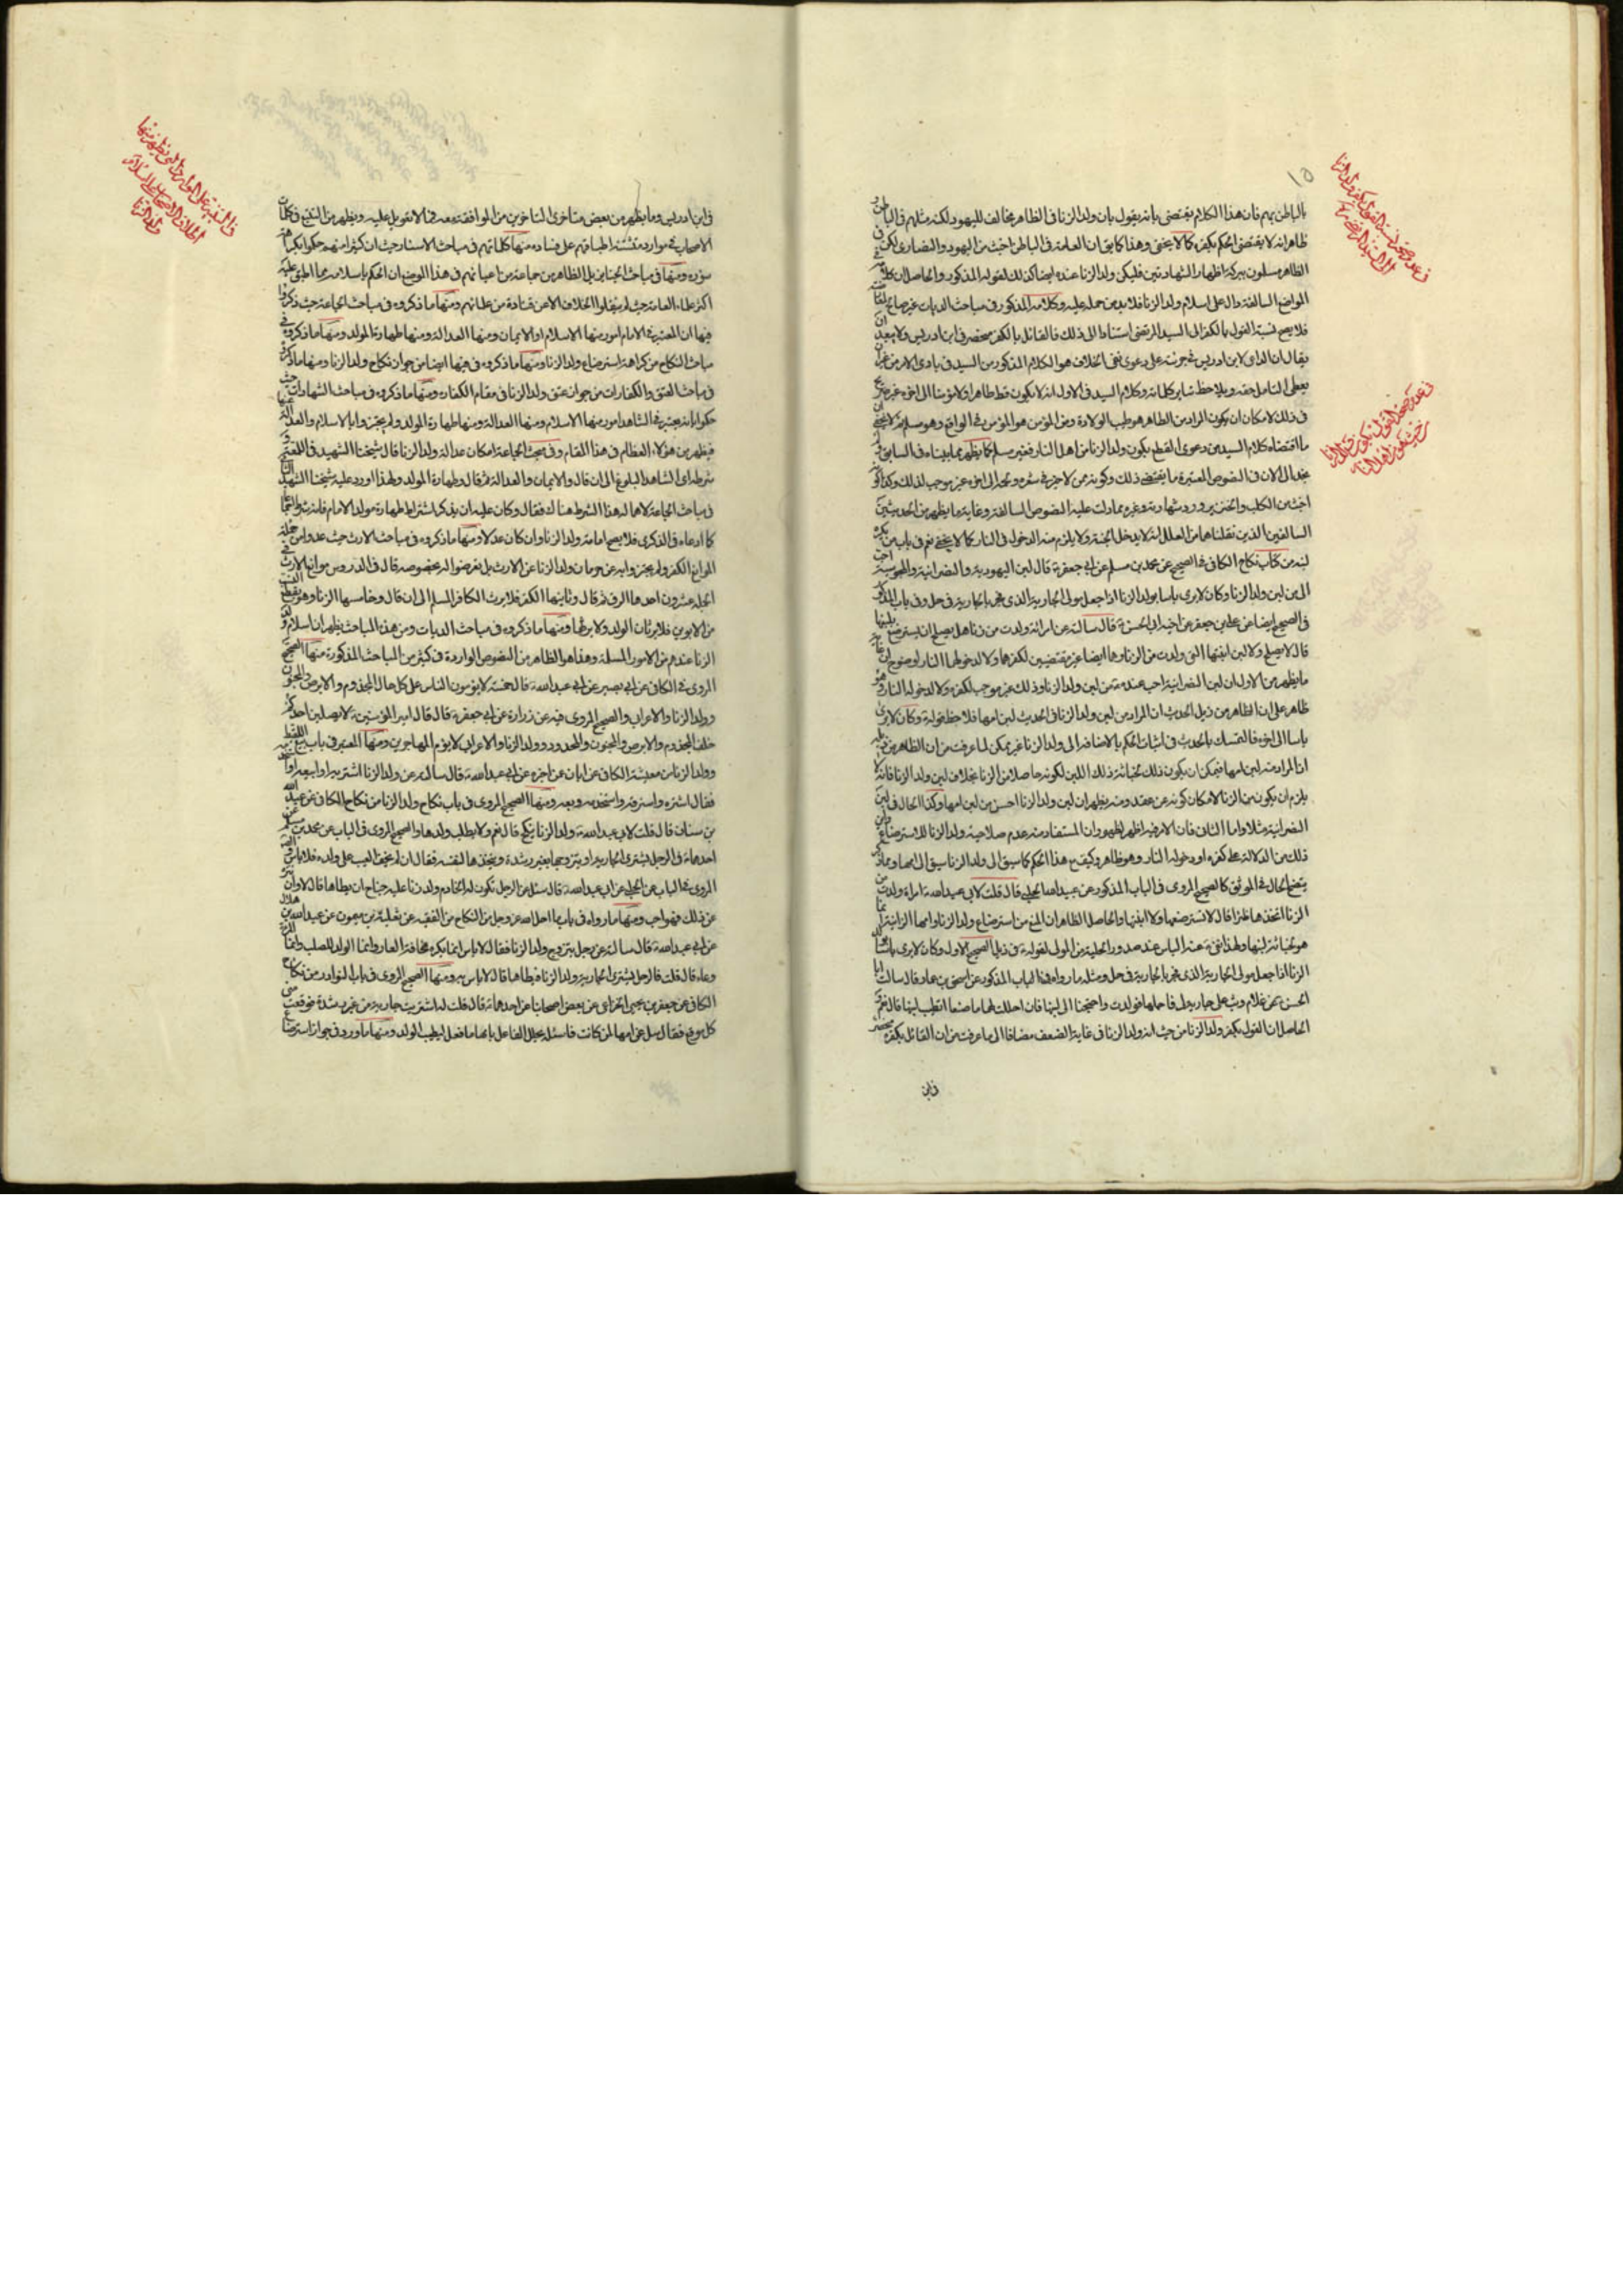 بالباطن بهم فان هذا الكلام يقتضى بانه يقول بان ولد الزنا فى الظاهر مخالف لليهود لكنه مثلهم فى الباطن
ظاهرانه لا يقتضى الحكم بكفره كما لا يخفى وهذا كما يق ان العامة فى الباطن اخبث من اليهود والنصارى لكن فى
الظاهر مسلمون ببركة اظهار الشهادتين فليكن ولد الزنا عنده ايضا كذلك لقوله المذكور والحاصل ان كلامه فى
المواضع السالفة دال على اسلام ولد الزنا فلابد من حمله عليه وكلامه المذكور فى مباحث الديات غير صالح
فلا يصح نسبة القول بالكفر الى السيد المرتضى استنادا الى ذلك فالقائل بالكفر منحصر فى ابن ادريس ولا يبعد ان
يقال ان الداعى لابن ادريس فى جرئته على دعوى نفى الخلاف هو الكلام المذكور من السيد فى بادى الامر من غير ان
يعطى التامل حقه ويلاحظ ساير كلماته وكلام السيد فى الاول انه لا يكون قط طاهرا ولا مؤمنا الى اخره غير صريح
فى ذلك لامكان ان يكون المراد من الطاهر هو طيب الولادة ومن المؤمن هو المؤمن فى الواقع وهو مسلم
ما اقتضاه كلام السيد من دعوى القطع بكون ولد الزنا من اهل النار فغير مسلم كما يظهر مما بيناه فى السابق
نجد الى الان فى النصوص المعتبرة ما يقتضى ذلك وكونه ممن لا خير فى بشره ونحوه الى اخره غير موجب لذلك وكذا كونه
اخبث من الكلب والخنزير ورد شهادته وغيره مما دلت عليه النصوص السالفة وغاية ما يظهر من الحديثين
السالفين الذين نقلناهما من العلل انه لا يدخل الجنة ولا يلزم منه الدخول فى النار كما لا يخفى نعم فى باب من يكره
لبنه من كتاب نكاح الكافى فى الصحيح عن محمد بن مسلم عن ابى جعفر ع قال لبن اليهودية والنصرانية والمجوسية احب
الى من لبن ولد الزنا وكان لا يرى باسا بولد الزنا اذا جعل مولى الجارية الذى فجر بالجارية فى حل وفى باب المذكور
فى الصحيح ايضا عن على بن جعفر عن اخيه ابى الحسن ع قال سالته عن امراة ولدت من زنا هل يصلح ان يسترضع بلبنها
قال لا يصلح ولا لبن ابنتها التى ولدت من الزنا وهما ايضا غير مقتضيين لكفرهما ولا لدخولهما النار
ما يظهر من الاول ان لبن النصرانية احب عنده ع من لبن ولد الزنا وذلك غير موجب لكفره ولا لدخوله النار وهو
ظاهر على ان الظاهر من ذيل الحديث ان المراد من لبن ولد الزنا فى الحديث لبن امها فلاحظ قوله ع وكان لا يرى
باسا الى اخره فالتمسك بالحديث فى اثبات الحكم بالاضافة الى ولد الزنا غير ممكن لما عرفت من ان الظاهر من ذيله
ان المراد منه لبن امها فيمكن ان يكون ذلك لخباثة ذلك اللبن لكونه حاصلا من الزنا بخلاف لبن ولد الزنا فانه لا
يلزم ان يكون من الزنا لامكان كونه عن عقد ومنه يظهر ان لبن ولد الزنا احسن من لبن امها وكذا الحال فى لبن
النصرانية مثلا واما الثانى فان الامر فيه اظهر لظهور ان المستفاد منه عدم صلاحية ولد الزنا للاسترضاع واين
ذلك من الدلالة على كفره او دخوله النار وهو ظاهر وكيف مع هذا الحكم كما سيق الى ولد الزنا سيق الى امها
يتضح الحال فى الموثق كالصحيح المروى فى الباب المذكور عن عبيد الله الحلبى قال قلت لابى عبد الله ع امراة ولدت من
الزنا اتخذها ظئرا قال لا تسترضعها ولا ابنتها والحاصل الظاهر ان المنع من استرضاع ولد الزنا وامها الزانية انما
هو لخباثة لبنها ولهذا نفى ع عنه الباس عند صدور الحلية من المولى لقوله ع فى ذيل الصحيح الاول وكان لا يرى باسا بولد
الزنا اذا جعل مولى الجارية الذى فجر بالجارية فى حل ومثله ما رواه فى الباب المذكور عن اسحق بن عمار قال سالت ابا
الحسن ع عن غلام وثب على جارية لى فاحبلها فولدت واحتجنا الى لبنها فان احللت لهما ما صنعا ايطيب لبنها قال نعم
الحاصل ان القول بكفر ولد الزنا من حيث انه ولد الزنا فى غاية الضعف مضافا الى ما عرفت من ان القائل بكفره منحصر
فى ابن
فى ابن ادريس وما يظهر من بعض متاخرى المتاخرين من الموافقة معه فمما لا تعويل عليه ويظهر من التتبع فى كلمات
الاصحاب فى موارد متشتتة اطباقهم على فساده منها كلماتهم فى مباحث الاسئار حيث ان كثيرا منهم حكموا بكراهة
سؤره ومنها فى مباحث الجنايز بل الظاهر من جماعة من اعيانهم فى هذا الموضع ان الحكم باسلامه مما اطبق عليه
اكثر علماء العامة حيث لم ينقلوا الخلاف الا عن قتادة من علمائهم ومنها ما ذكروه فى مباحث الجماعة حيث ذكروا
فيها ان المعتبر فى الامام امور منها الاسلام او الايمان ومنها العدالة ومنها طهارة المولد ومنها ما ذكروه فى
مباحث النكاح من كراهة استرضاع ولد الزنا ومنها ما ذكروه فيها ايضا من جواز نكاح ولد الزنا ومنها ما ذكروه
فى مباحث العتق والكفارات من جواز عتق ولد الزنا فى مقام الكفاره ومنها ما ذكروه فى مباحث الشهادات حيث
حكموا بانه يعتبر فى الشاهد امور منها الاسلام ومنها العدالة ومنها طهارة المولد ولم يجتزوا بالاسلام والعدالة
فيظهر من هؤلاء العظام فى هذا المقام وفى مبحث الجماعة امكان عدالة ولد الزنا قال شيخنا الشهيد فى اللمعة
شرطه اى الشاهد البلوغ الى ان قال والايمان والعدالة ثم قال وطهارة المولد ولهذا اورد عليه شيخنا الشهيد الثانى
فى مباحث الجماعة لاهماله هذا الشرط هناك فقال وكان عليه ان يذكر اشتراط طهارة مولد الامام فانه شرط اجماعا
كما ادعاه فى الذكرى فلا يصح امامة ولد الزنا وان كان عدلا ومنها ما ذكروه فى مباحث الارث حيث عدوا من جملة
الموانع الكفر ولم يجتزوا به عن حرمان ولد الزنا عن الارث بل تعرضوا له بخصوصه قال فى الدروس موانع الارث فى
الجملة عشرون احدها الرق ثم قال وثانيها الكفر فلا يرث الكافر المسلم الى ان قال وخامسها الزنا وهو يقطع النسب
من الابوين فلا يرثان الولد ولا يرثهما ومنها ما ذكروه فى مباحث الديات ومن هذه المباحث يظهر ان اسلام ولد
الزنا عندهم من الامور المسلمة وهذا هو الظاهر من النصوص الواردة فى كثير من المباحث المذكورة منها الصحيح
المروى فى الكافى عن ابى بصير عن ابى عبد الله ع قال خمسة لا يؤمون الناس على كل حال المجذوم والابرص والمجنون
وولد الزنا والاعرابى والصحيح المروى فيه عن زرارة عن ابى جعفر ع قال قال امير المؤمنين ع لا يصلين احدكم
خلف المجذوم والابرص والمجنون والمحدود وولد الزنا والاعرابى لا يؤم المهاجرين ومنها المعتبر فى باب بيع اللقيط
وولد الزنا من معيشة الكافى عن ابان عن من اخبره عن ابى عبد الله ع قال سالته عن ولد الزنا اشتريه او ابيعه او استخدمه
فقال اشتره واسترقه واستخدمه وبعه ومنها الصحيح المروى فى باب نكاح ولد الزنا من نكاح الكافى عن عبد الله
بن سنان قال قلت لابى عبد الله ع ولد الزنا ينكح قال نعم ولا يطلب ولدها والصحيح المروى فى الباب عن محمد بن مسلم عن
احدهما ع فى الرجل يشترى الجارية او يتزوجها بغير رشدة ويتخذها لنفسه فقال ان لم يخف العيب على ولده فلا باس
المروى فى الباب عن الحلبى عن ابى عبد الله ع قال سئل عن الرجل تكون له الخادم ولد زنا عليه جناح ان يطاها قال لا وان تنزه
عن ذلك فهو احب ومنها ما رواه فى باب ما احل الله عز وجل من النكاح من الفقيه عن ثعلبة بن ميمون عن عبد الله بن هلال
عن ابى عبد الله ع قال سالته عن رجل يتزوج ولد الزنا فقال لا باس انما يكره مخافة العار وانما الولد للصلب وانما المراة
وعاء قال قلت فالرجل يشترى الجارية ولد الزنا فيطاها قال لا باس به ومنها الصحيح المروى فى باب النوادر من نكاح
الكافى عن جعفر بن يحيى الخزاعى عن بعض اصحابنا عن احدهما ع قال قلت له اشتريت جارية من غير رشدة فوقعت منى
كل موقع فقال سل عن امها لمن كانت فاسئله يحلل الفاعل بامها ما فعل ليطيب الولد ومنها ما ورد فى جواز استرضاع